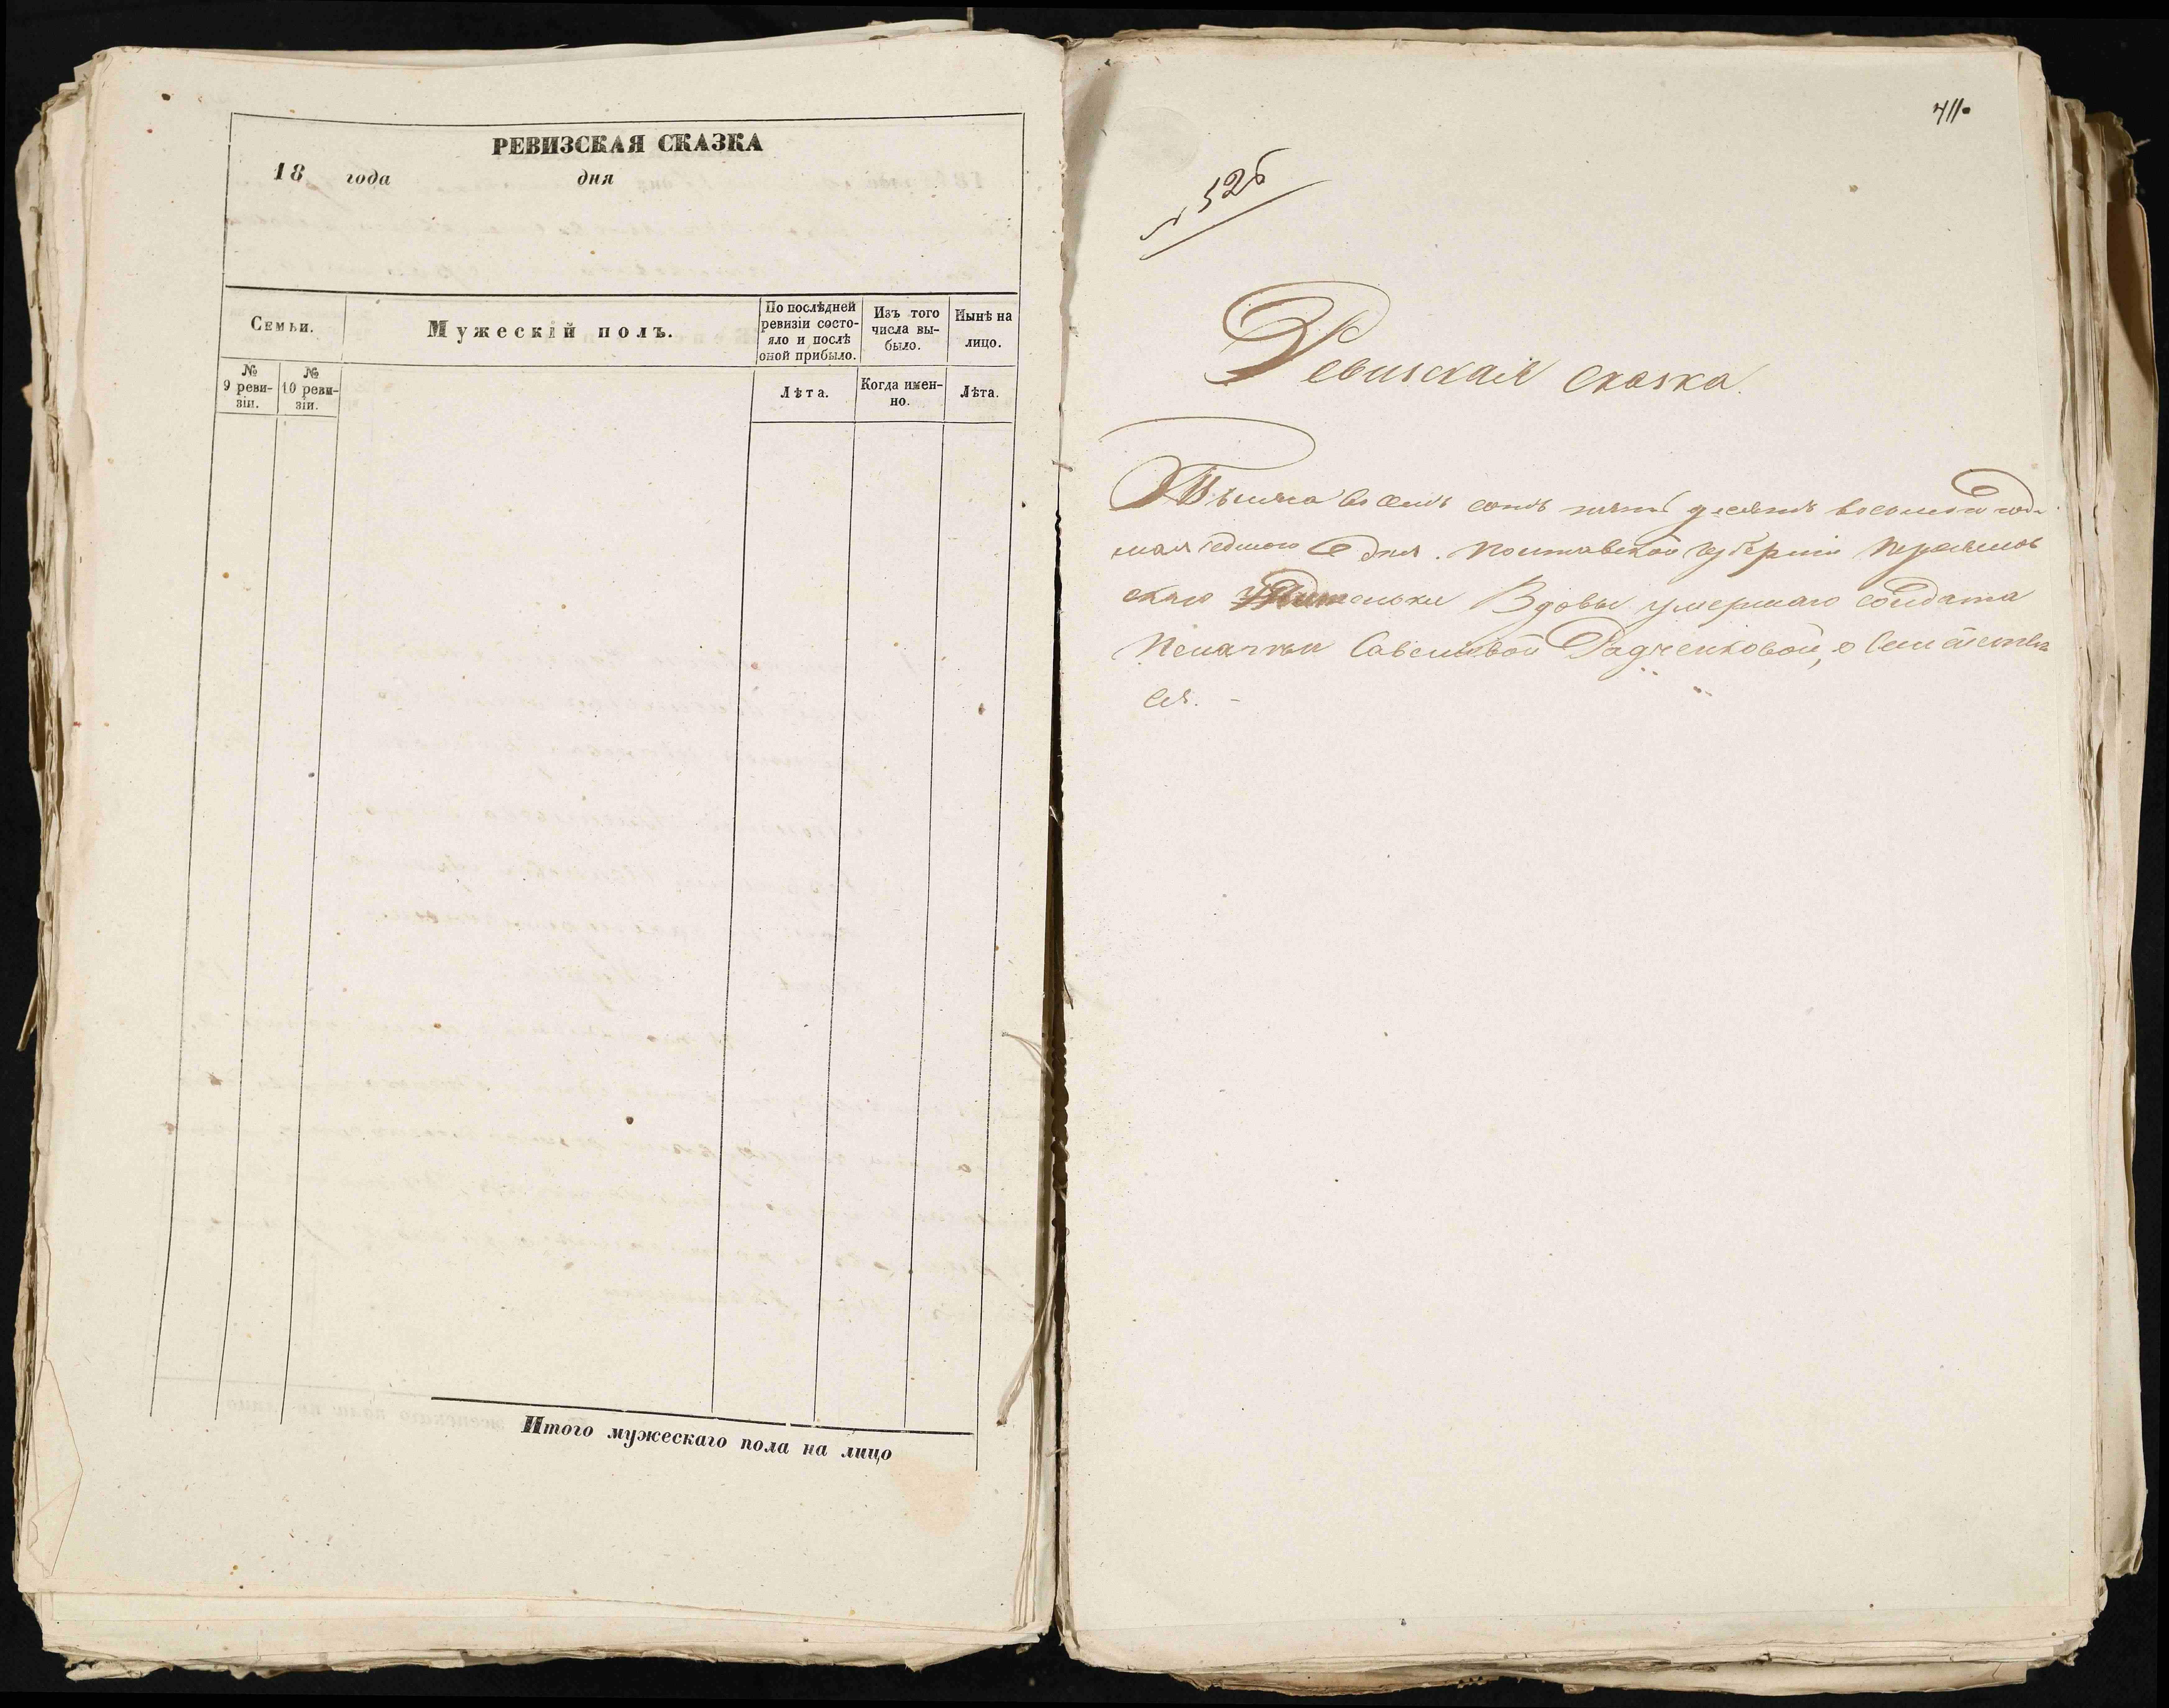 РЕВИЗСКАЯ СКАЗКА
18 года дня
Семьи.
Мужескій полъ.
По послѣдней
ревизіи состо-
яло и послѣ
оной прибыло.
Изъ того
числа вы-
было.
Нынѣ на
лицо.
№
9 реви-
зіи.
№
10 реви-
зіи.
Лѣта.
Когда имен-
но.
Лѣта.
Итого мужескаго пола на лицо
711.
№ 326
Ревизская сказка.
Тысяча восемь сотъ пять десятъ восьмого года
мая седмого дня. Полтавской Губерніи Переяслов
скаго Вдовы умершаго солдата
Пелагеи Савельевой Радченковой, о семействѣ
ея. -